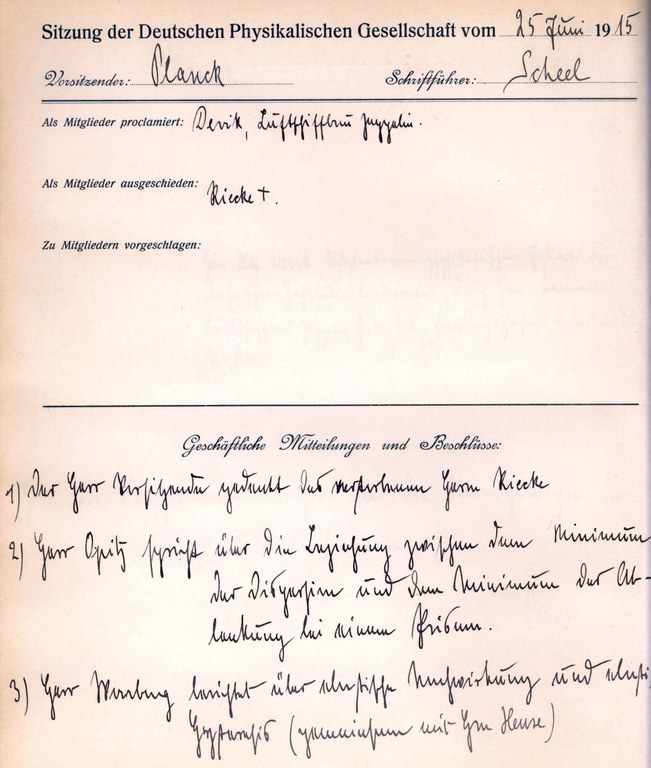 Sitzung der Deutschen Physikalischen Gesellschaft vom 25 Juni 1915
Vorsitzender: Planck Schriftführer: Scheel
Als Mitglieder proclamiert: Devik, Luftschiffbau Zeppelin.
Als Mitglieder ausgeschieden: Riecke †.
Zu Mitgliedern vorgeschlagen:
Geschäftliche Mitteilungen und Beschlüsse:
1) Der Herr Vorsitzende gedenkt des verstorbenen Herrn Riecke
2) Herr Opitz spricht über die Beziehung zwischen dem Minimum
der Dispersion und dem Minimum der Ab-
lenkung bei einem Prisma.
3) Herr Warburg berichtet über elastische Nachwirkung und elasti
Hysteresis (gemeinsam mit Hrn Heuse)